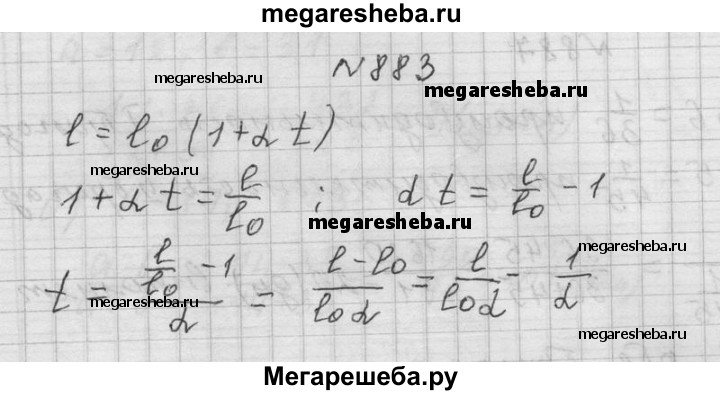 megaresheba.ru
№883
megaresheba.ru
megaresheba.ru
l = l₀ (1+αt)
megaresheba.ru
1+αt = l/l₀ ; αt = l/l₀ − 1
megaresheba.ru
megaresheba.ru
t = (l/l₀ − 1)/α = (l−l₀)/(l₀α) = l/(l₀α) − 1/α
megaresheba.ru
megaresheba.ru
megaresheba.ru
Мегарешеба.ру